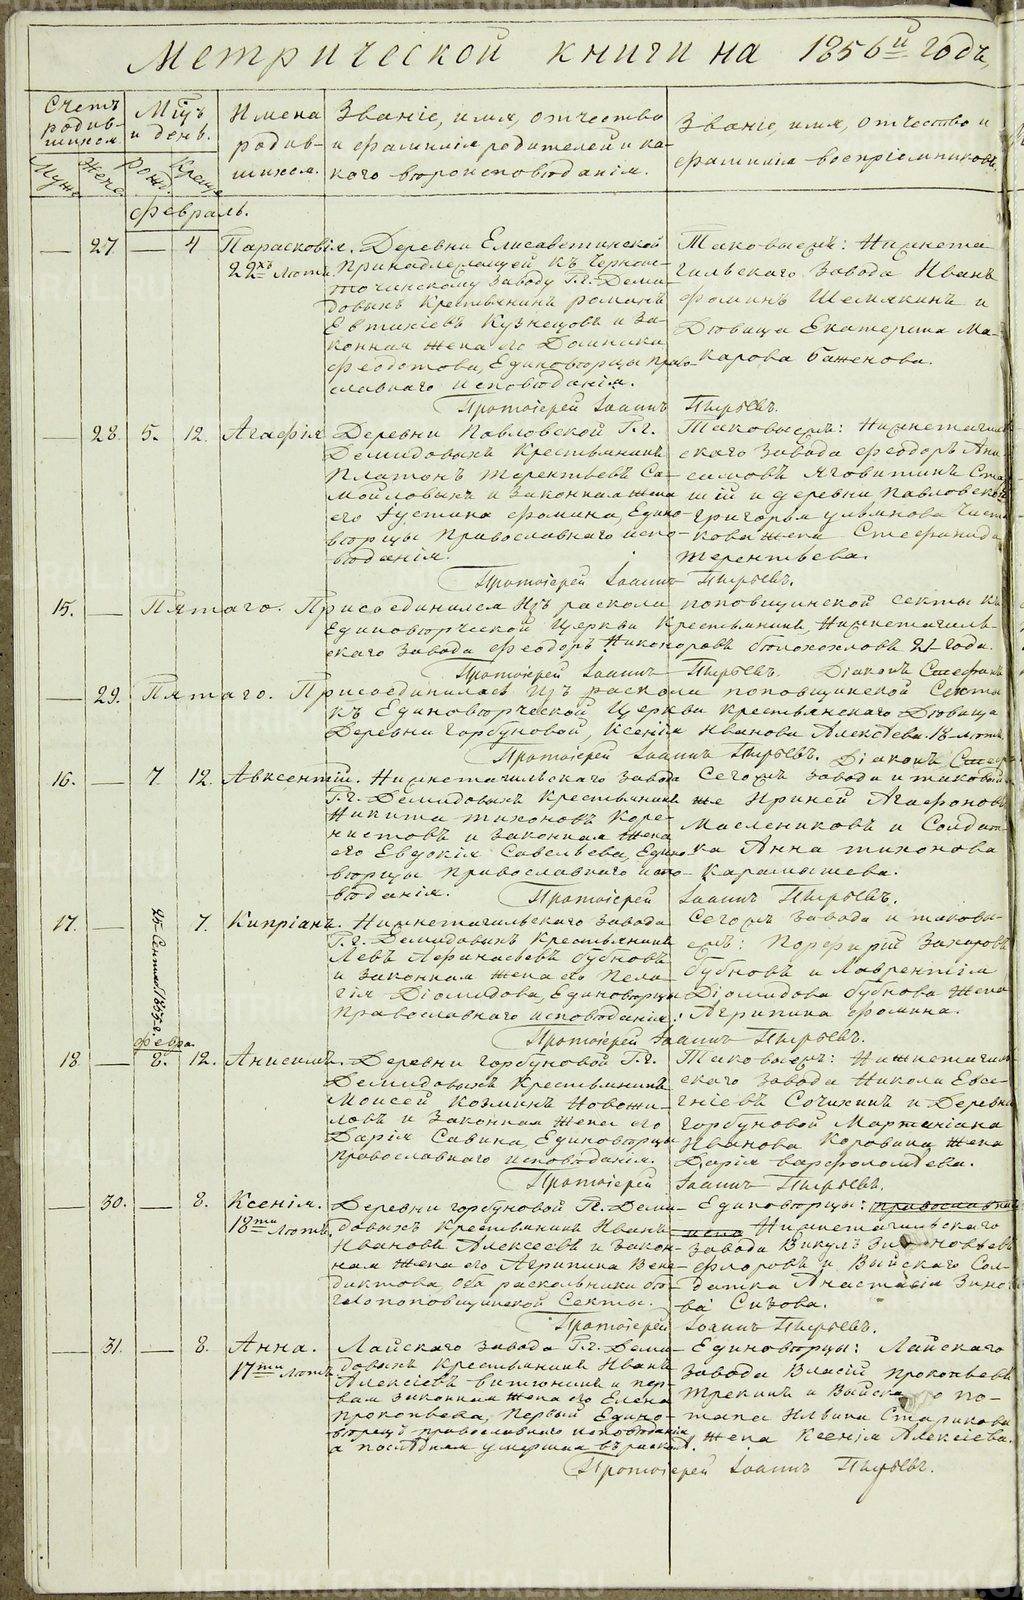 Метрической книги на 1856й годъ,
Счетъ родившихся
Мужеска
Женска
М-цъ и день.
Рожд.
Крещ.
Имена родившихся.
Званіе, имя, отчество и фамилія родителей и какого вѣроисповѣданія.
Званіе, имя, отчество и фамилія воспріемниковъ.
Февраль.
— 27. — 4 Параскoвія. 22хъ лѣтъ.
Деревни Елисаветинской
принадлежащей къ Черноис-
точинскому заводу Г.г. Деми-
довыхъ крестьянинъ Романъ
Евтихіевъ Кузнецовъ и за-
конная жена его Домника
Федотова, Единовѣрцы право-
славнаго исповѣданія.
Таковыежъ: Нижнета-
гильскаго завода Иванъ
Фоминъ Шемякинъ и
Дѣвица Екатерина Ма-
карова Баженова.
Протоіерей Іоаннъ Пырьевъ.
— 28. 5. 12. Агафія
Деревни Павловской Г.г.
Демидовыхъ крестьянинъ
Платонъ Терентьевъ Са-
мойловыхъ и законная жена
его Іустина Фомина, Едино-
вѣрцы Православнаго испо-
вѣданія.
Таковыежъ: Нижнетагиль-
скаго завода Феодоръ Ани-
симовъ Яговитинъ
и деревни Павловской
Григорья Ульянова
жена Стефанида
Терентьева.
Протоіерей Іоаннъ Пырьевъ.
15. — Пятаго. Присоединился изъ раскола поповщинской секты къ
Единовѣрческой Церкви крестьянинъ, Нижнетагиль-
скаго завода Феодоръ Никоноровъ 21 года.
Протоіерей Іоаннъ Пырьевъ. Діаконъ Стефанъ
— 29. Пятаго. Присоединилась изъ раскола поповщинской секты
къ Единовѣрческой Церкви крестьянская Дѣвица
Деревни Горбуновой, Ксенія Иванова Алексѣева 18 лѣтъ.
Протоіерей Іоаннъ Пырьевъ. Діаконъ
16. — 7. 12. Авксентій.
Нижнетагильскаго завода
Г.г. Демидовыхъ крестьянинъ
Никита Тихоновъ Коре-
нистовъ и законная жена
его Евдокія Савельева, Едино-
вѣрцы православнаго испо-
вѣданія.
Сегожъ завода и таковые
же Ириней Агафоновъ
Маслениковъ и Солдат-
ка Анна Тихонова
Карамышева.
Протоіерей Іоаннъ Пырьевъ.
17. — 25 Сентяб. 1855 г. 7. Кипріанъ.
Нижнетагильскаго завода
Г.г. Демидовыхъ крестьянинъ
Левъ Афанасьевъ Бубновъ
и законная жена его Пела-
гія Діомидова, Единовѣрцы
Православнаго исповѣданія.
Сегожъ завода и таковы-
ежъ: Порфирій Захаровъ
Бубновъ и Лаврентія
Діомидова Бубнова жена
Агрипина Фомина.
Протоіерей Іоаннъ Пырьевъ.
Февра.
18 — 8. 12. Анисимъ.
Деревни Горбуновой Г.г.
Демидовыхъ крестьянинъ
Моисей Козминъ Новожи-
ловъ и законная жена его
Дарія Савина, Единовѣрцы
православнаго исповѣданія.
Таковыежъ: Нижнетагиль-
скаго завода Никола Евсе-
гніевъ Сочихинъ и Деревни
Горбуновой Мартиніана
Иванова Коровина жена
Дарія Варфоломѣева.
Протоіерей Іоаннъ Пырьевъ.
— 30. — 8. Ксенія. 18ти лѣтъ.
Деревни Горбуновой Гг. Деми-
довыхъ крестьянинъ Иванъ
Ивановъ Алексѣевъ и закон-
ная жена его Агрипина Вене-
диктова, оба раскольники бѣ-
глопоповщинской Секты.
Единовѣрцы: православнаго
испо Нижнетагильскаго
завода Викулъ
Флоровъ и Выйскаго Сол-
датка Анастасія Зинов
ва Сизова.
Протоіерей Іоаннъ Пырьевъ.
— 31. — 8. Анна. 17ти лѣтъ
Лайскаго завода Г.г. Деми-
довыхъ крестьянинъ Иванъ
Алексіевъ и пер-
вая законная жена его Елена
Прокопьева, Первый Едино-
вѣрецъ православнаго исповѣданія,
а послѣдняя умершая въ расколѣ.
Единовѣрцы: Лайскаго
завода Власій Прокопьевъ
Трекинъ и Выйска о По-
тапа Ильина Старикова
жена Ксенія Алексіева.
Протоіерей Іоаннъ Пырьевъ.
METRIKI.GASO-URAL.RU